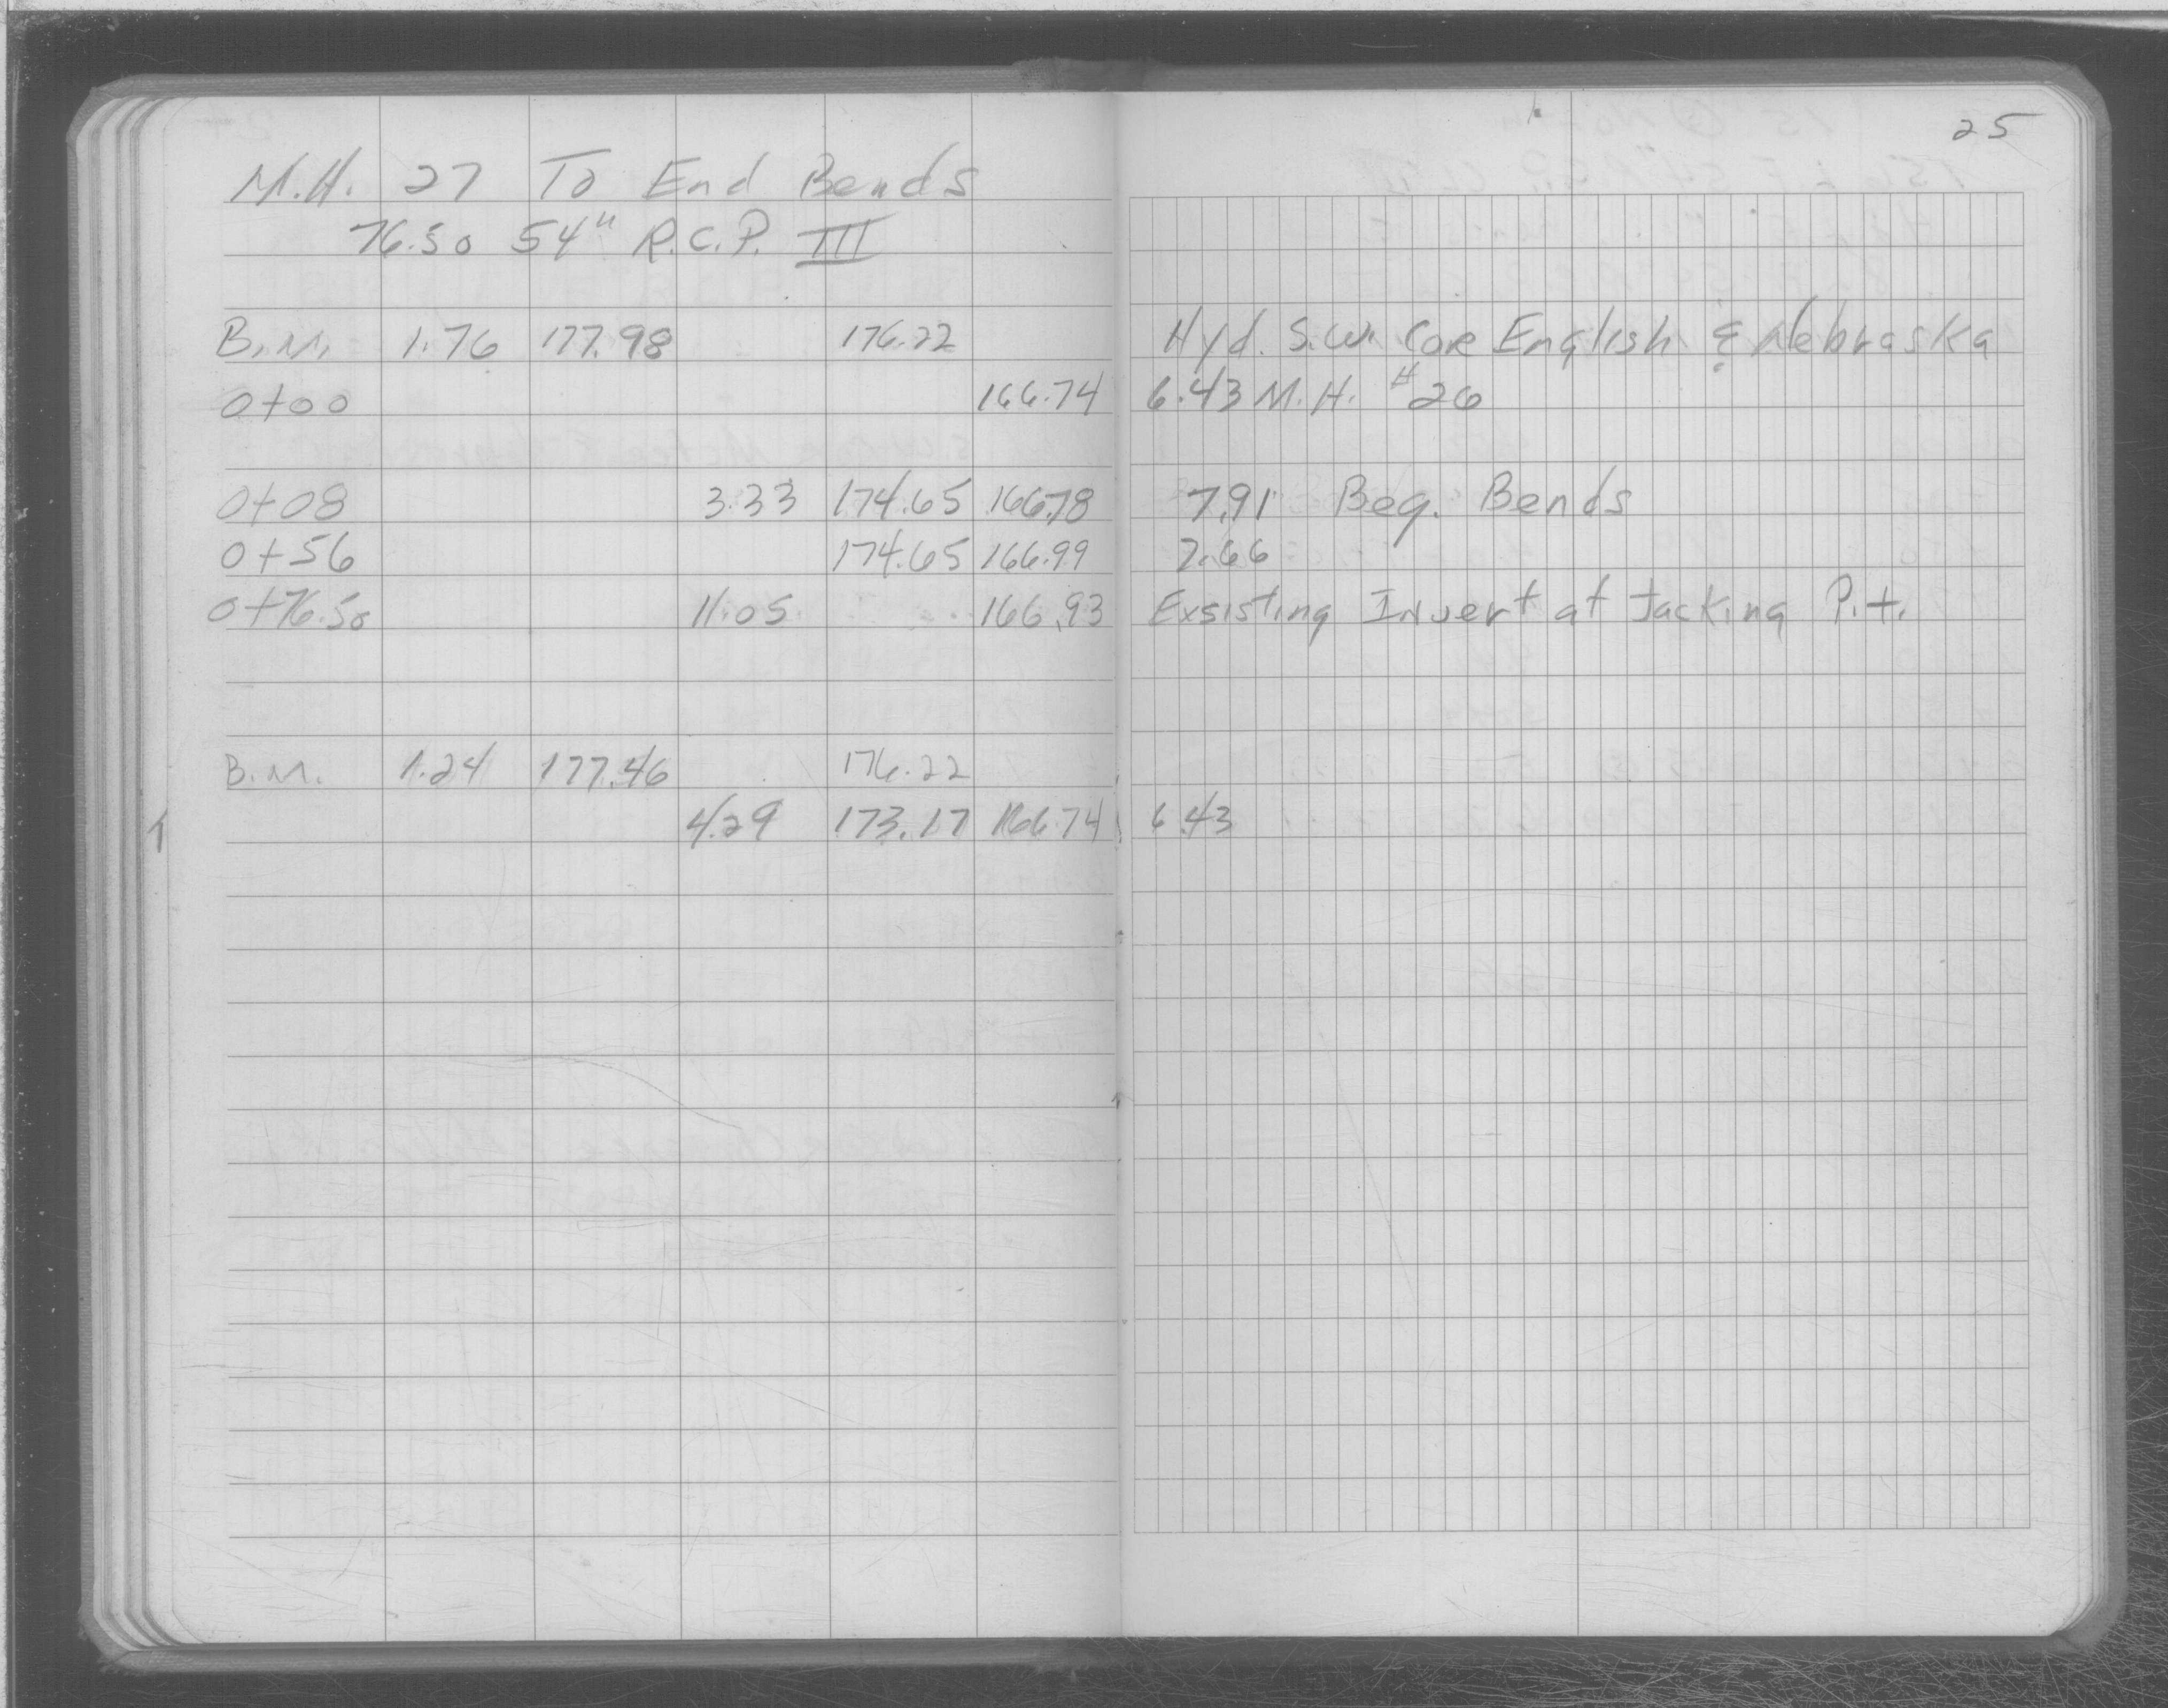 25
M.H. 27 To End Bends
76.50 54" R.C.P. III
B.M. 1.76 177.98 176.22 Hyd. S.W. Cor English & Nebraska
0+00 166.74 6.43 M.H. #26
0+08 3.33 174.65 166.78 7.91 Beg. Bends
0+56 174.65 166.99 7.66
0+76.50 11.05 166.93 Exsisting Invert at Jacking Pit.
B.M. 1.24 177.46 176.22
4.29 173.17 166.74 6.43